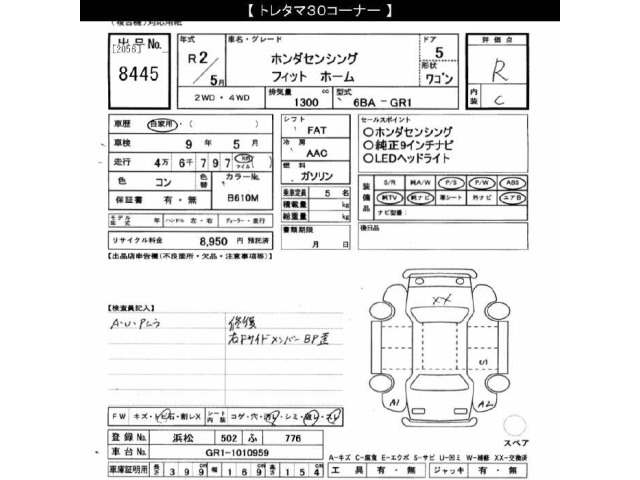 【 トレタマ30コーナー 】
(複合機)対応用紙
出品No.
[2056]
8445
年式
R 2 / 5月
車名・グレード
ホンダセンシング
フィット ホーム
ドア 5
形状
ワゴン
2WD・4WD
排気量 1300 cc
型式 6BA－GR1
評価点
R
内装 C
車歴 自家用・( )
車検 9 年 5 月
走行 4万 6千 7 9 7 km マイル
色 コン
色替
カラーNo.
B610M
保証書 有・無
モデル年式 年 ハンドル 左・右 ディーラー・並行
リサイクル料金 8,950 円 預託済
シフト
FAT
冷房
AAC
燃料
ガソリン
乗車定員 5 名
積載量 kg
総重量 kg
書類期限
月 日
セールスポイント
○ホンダセンシング
○純正9インチナビ
○LEDヘッドライト
装備品
S/R 純A/W P/S P/W ABS
純TV 純ナビ 革シート 外ナビ エアB
ナビ型番：
後日品
【出品店申告欄(不良箇所・欠品・注意事項等)】
【検査員記入】
A・U・Pしう
修復
右FサイドメンバーBP歪
XX
U1
A1
A2
スペア
FW キズ・トビ石・割レX シート内装 コゲ・穴・汚レ・シミ・破レ・スレ
登録No. 浜松 502 ふ 776
車台No. GR1-1010959
車庫証明用 長さ 399 cm 幅 169 cm 高さ 154 cm
A-キズ C-腐食 E-エクボ S-サビ U-凹ミ W-補修 XX-交換済
工具 有・無 ジャッキ 有・無